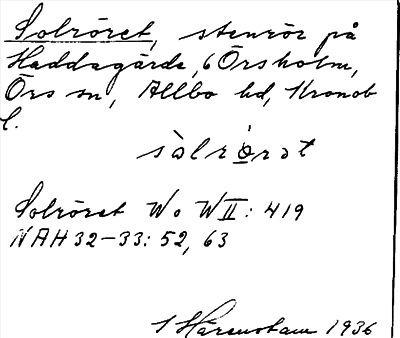 Solröret, stenrör på
Haddagärde, Örsholm,
Örs sn, Allbo hd, Kronob
l.
sòlrö̀rət
Solröret W o W II: 419
NAH 32–33: 52, 63
Härenstam 1936